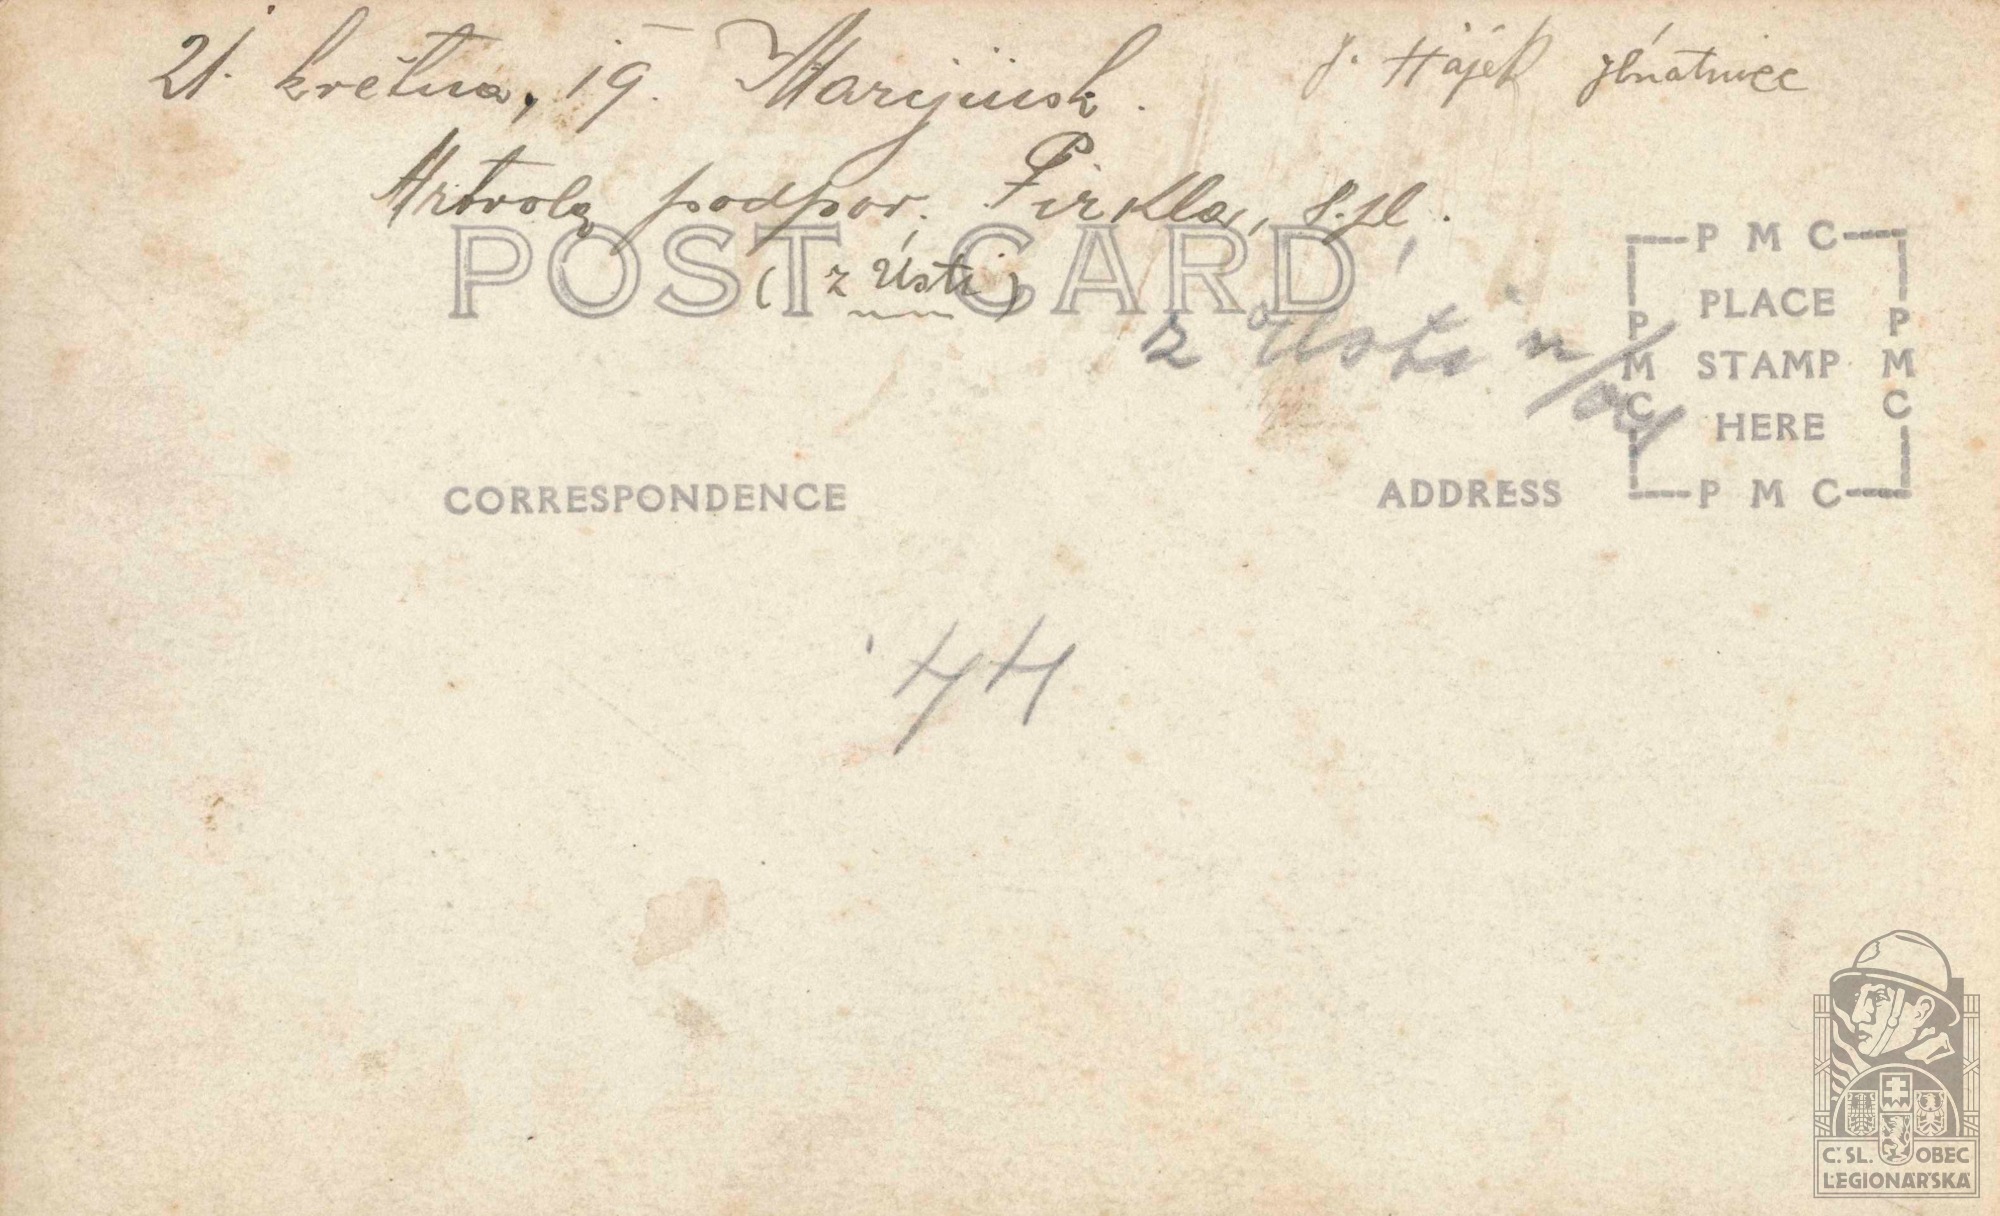 21. května, 19. Marijinsk.
J. Hájek
Mrtvola podpor. Pirkla, 8. pl.
POST CARD
( z Ústí )
z Ústí n/Orl
P M C
PLACE
STAMP
HERE
P M C
P M C
P M C
CORRESPONDENCE
ADDRESS
44
Č. SL. OBEC
LEGIONÁŘSKÁ